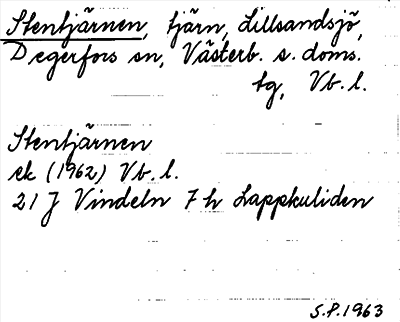 Stentjärnen, tjärn, Lillsandsjö,
Degerfors sn, Västerb. s. doms.
tg, Vb. l.
Stentjärnen
ek (1962) Vb. l.
21 J Vindeln 7 h Lappkuliden
S.P. 1963